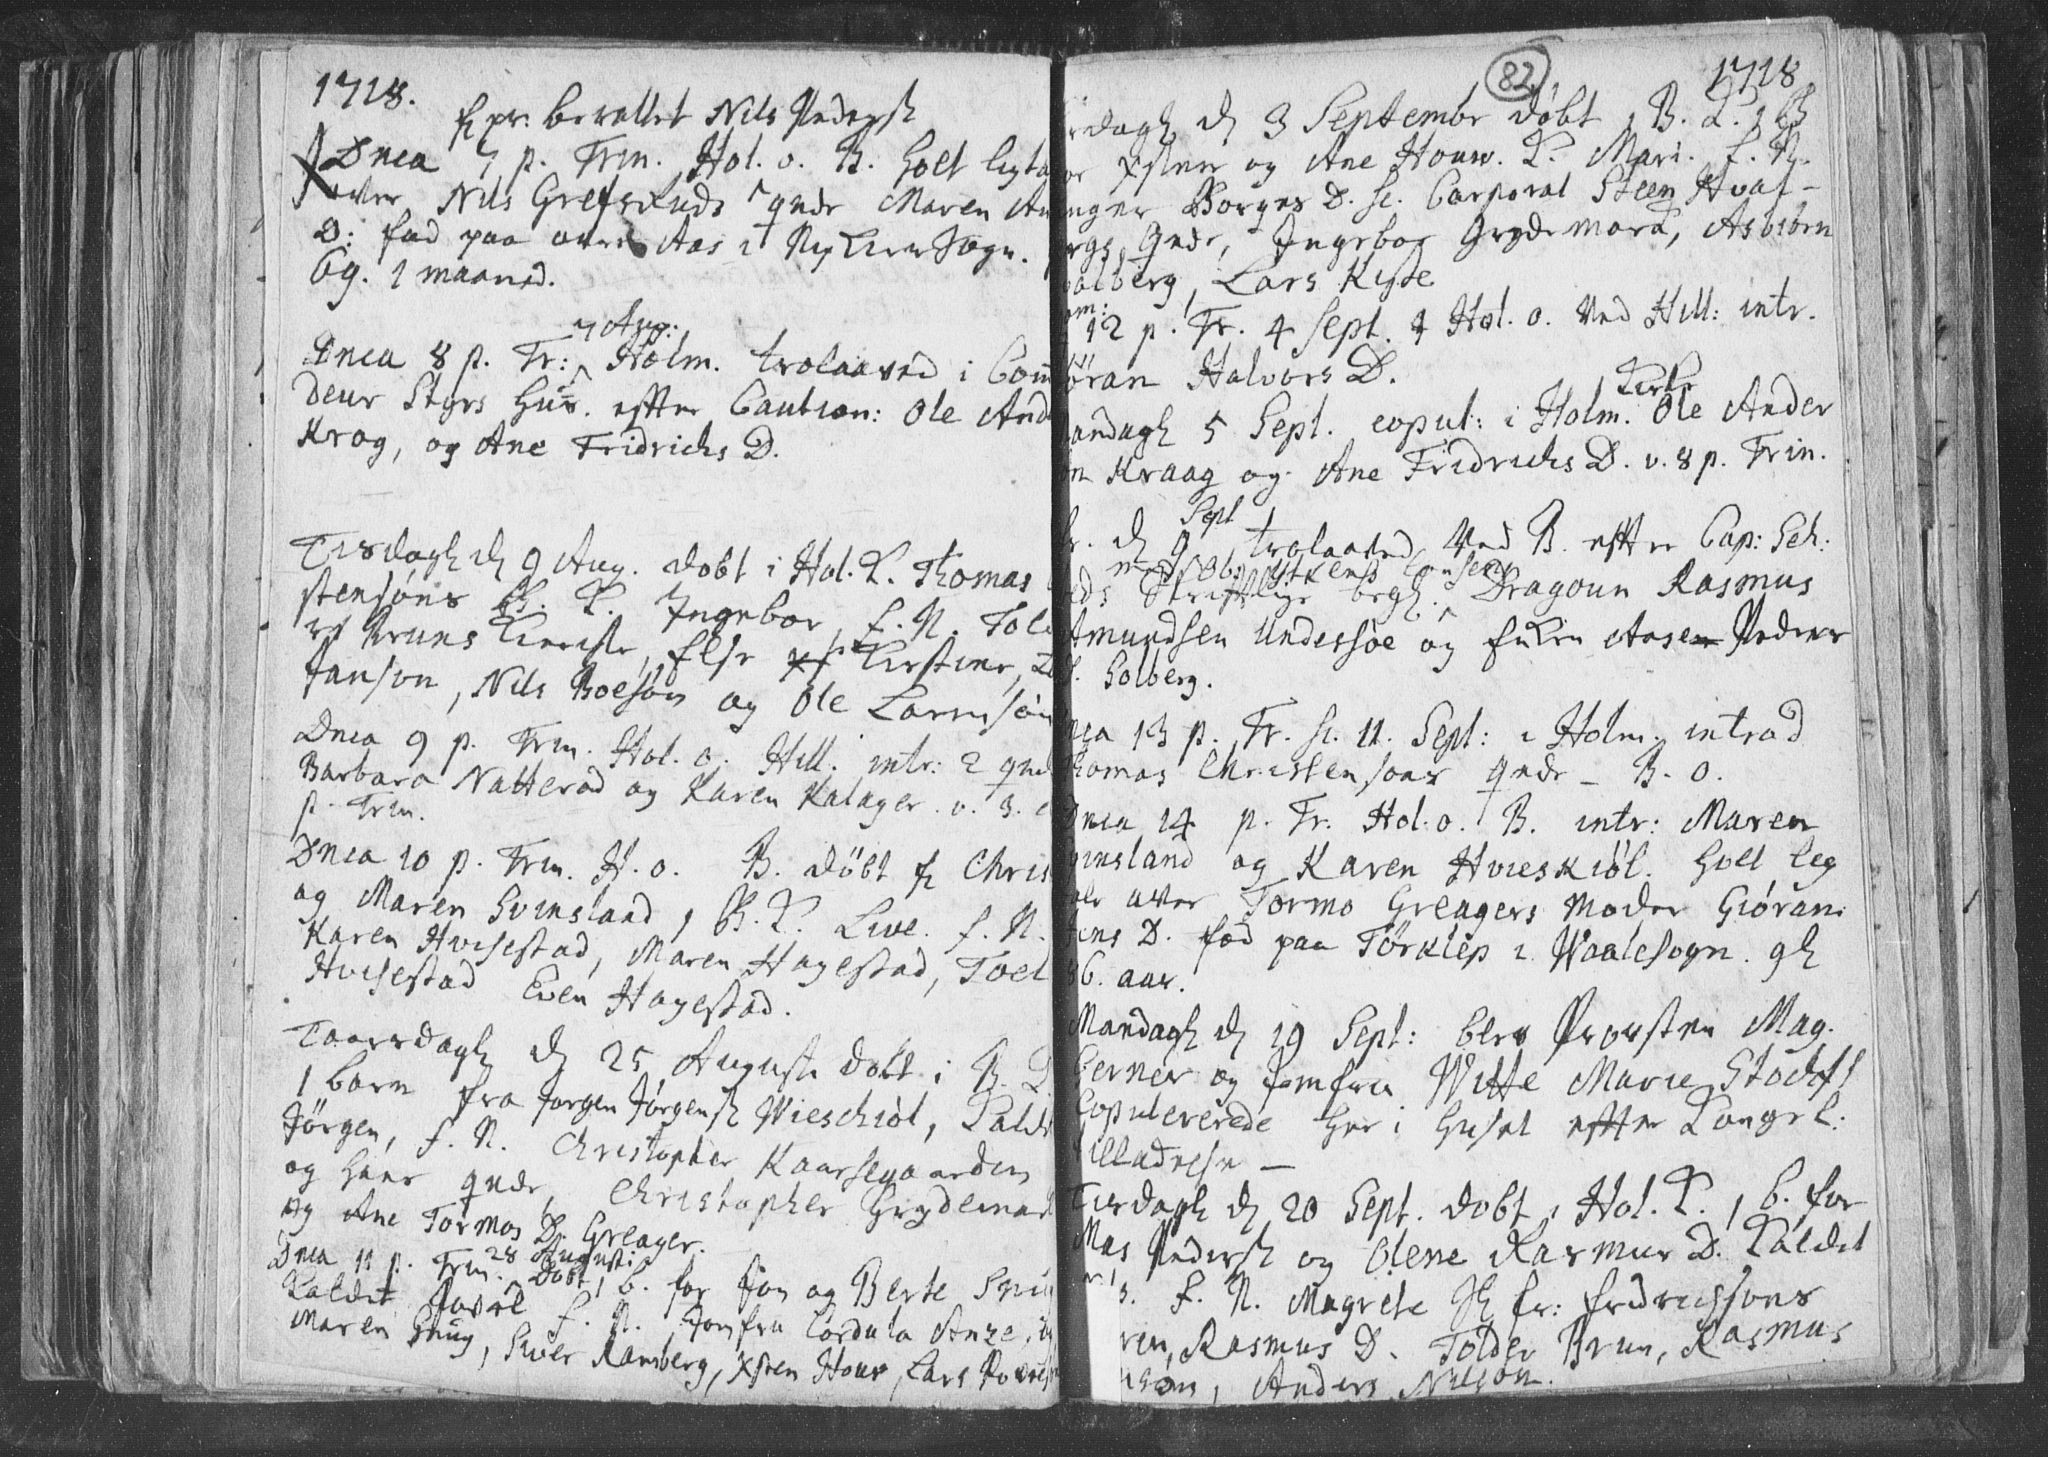 1718.
fr pr: bevallet Nils Peders
Dnca 7 p. Trin. Hol. o. B. holt
over Nils Grefsruds qnde Maren
D: fød paa Aas i Sogn.
6g. 1 maaned.
7 Aug:
Dnca 8 p. Tr: Holm. trolaaved i Com
deur Styrs Huus. effter Caution: Ole And
Krog, og Ane Fridrichs D.
Tisdagen d 9 Aug. døbt i Hol. K. Thomas
stensøns B. K. Ingebor, f. N. Tol
Bruns Kieriste, Else Kirstine,
Janson, Nils Boesøn og Ole Larensøn
Dnca 9 p. Trin. Hol. o. Hill. intr: 2 qnd
Barbara Natterød og Karen Kalager. v. 3.
p. Trin.
Dnca 10 p. Trin. H. o. B. døbt f Chris
og Maren Svinsland, B. K. Live. f. N.
Karen Hvisestad, Maren Hagestad, Toel
Hvisestad Even Hagestad.
Taarsdagen d 25 Augusti døbt i B. K
1 barn fra Jørgen Jørgens Wieschiøl, Kaldt
Jørgen, f. N. Christopher Kaarsegaarden
og hans qnde, Christopher Grydemark
og Ane Tormos D. Greager.
Dnca 11 p. Trin. 28 Augusti
døbt 1 b. for Jon og Berte
Kaldet Povel f. N. Jomfru Cordula Anze,
Maren Snug, Siver Ramberg, Xsten Houv, Lars Povels
82
1718
rdagen d 3 Septembr døbt i B. K. 1 B
for Xsten og Ane Houv. K. Mari. f. N.
Borges D. sc. Corporal Steen Hval-
bergs qnde, Ingebor Grydemark, Asbiørn
alberg, Lars Kise
12 p. Tr. 4 Sept. Hol. o. Ved Hill: intr.
øran Halvors D.
Mandagen 5 Sept. copul: i Holm. Kirke Ole Ander
Kraag og Ane Fridrichs D. v. 8 p. Trin.
d 9 Sept trolaaved Ved B. effter Cap: Sch:
Skriftlige begl. Dragoun Rasmus
Amundsen Undersøe og Enken Aase Peders
D. Solberg.
Dnca 13 p. Tr. sc. 11. Sept: i Holm. introd
Thomas Christensøns qnde - B. o.
Dnca 14 p. Tr. Hol: o. B. intr: Maren
vinsland og Karen Hvieskiøl. holt
over Tormo Greagers Moder Giøran
Jens D. fød paa Tørklep i Waalesogn. gl
86. aar.
Mandagen d 19 Sept: blev Provsten Mag.
Gerner og Jomfru Witte Marie Stochfl
Copulerede her i huset effter Kongel:
tilladelse -
Tirsdagen d 20 Sept. døbt i Hol. K. 1 b. for
Mas Peders og Olene Rasmus D. Kaldet
f. N. Magrete fr: Fridrichsøns
ren, Rasmus D. Tolder Brun, Rasmus
Anders Nilsøn.